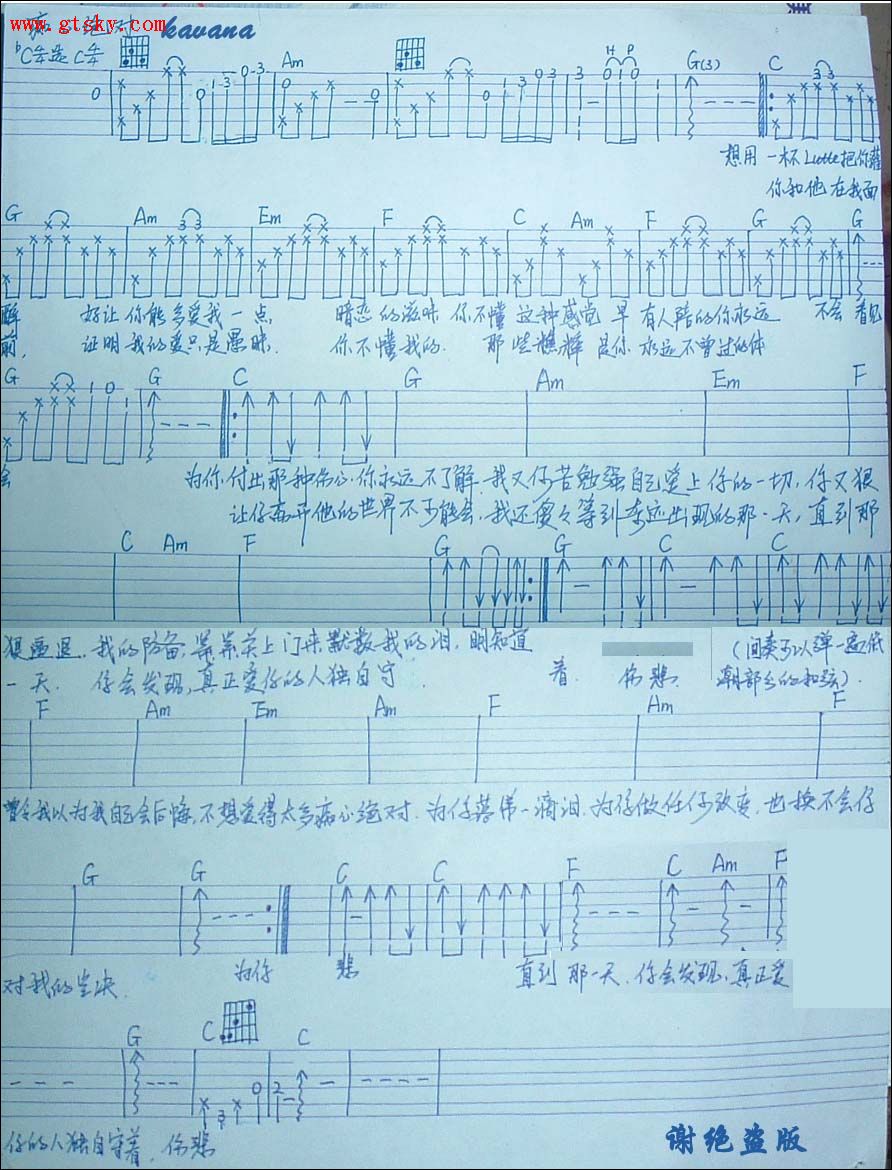 www.gtsky.com
痴 绝对 kavana
♭C半选C半
Am G(3) C
H P
想用一杯Latte把你灌
你和他在我面
G Am Em F C Am F G G
醉 好让你能多爱我一点 暗恋的滋味 你不懂这种感觉 早有人陪的你永远 不会看见
前, 证明我的爱只是愚昧. 你不懂我的 那些憔悴 是你永远不曾过的体
G G C G Am Em F
会 为你付出那种伤心你永远不了解 我又何苦勉强自己爱上你的一切, 你又狠
让你离开他的世界不可能会, 我还傻傻等到奇迹出现的那一天, 直到那
C Am F G G C C
狠逼退 我的防备, 静静关上门来默数我的泪, 明知道 (间奏可以弹一遍低
一天. 你会发现, 真正爱你的人独自守 着 伤悲 潮部分的和弦).
F Am Em Am F Am F
曾经我以为我自己会后悔, 不想爱得太多痴心绝对. 为你落第一滴泪. 为你做任何改变, 也换不会你
G G C C F C Am F
对我的坚决. 为你 悲 直到那一天. 你会发现, 真正爱
G C C
你的人独自守着, 伤悲
谢绝盗版